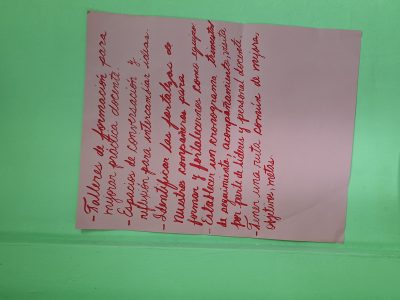 - Talleres de formación para
mejorar práctica docente.
- Espacios de conversación y
reflexión para intercambiar ideas.
- Identificar las fortalezas de
nuestros compañeros para
formar y fortalecernos como equipo
- Establecer un cronograma
de seguimiento, acompañamiento, visita
por parte de líderes y personal docente.
- Tener una ruta común de mejora,
objetivo, metas.